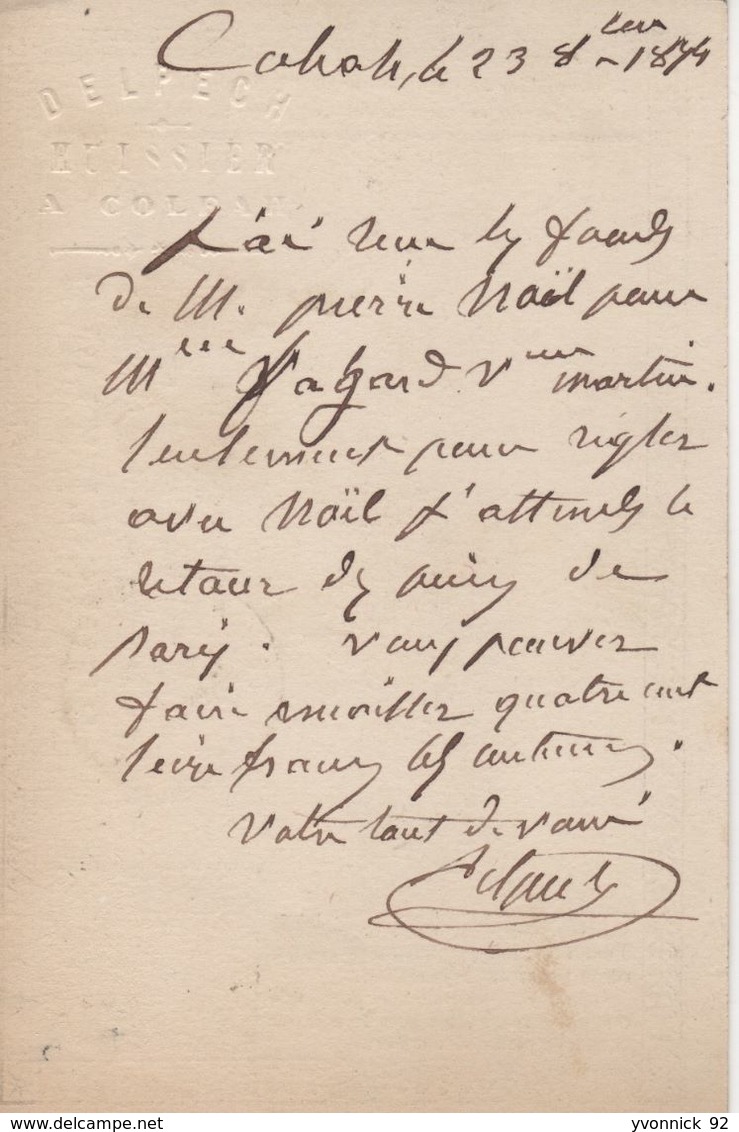 DELPECH
HUISSIER
A COLBAH
le 23 8bre 1874
J'ai reçu les fonds
de M. pierre Noël pour
Mme Vve martin.
seulement pour régler
avec Noël j'attends le
retour des pièces de
paris. vous pouvez
faire encaisser quatre cent
seize francs centimes.
Votre tout dévoué
Delpech
yvonnick 92